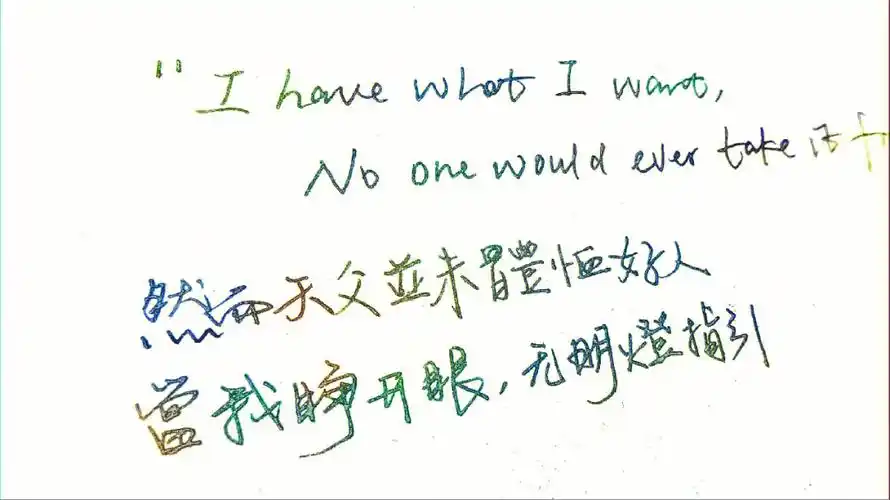 " I have what I want,
No one would ever take it
然而天父並未體恤好人
當我睜开眼,无明燈指引